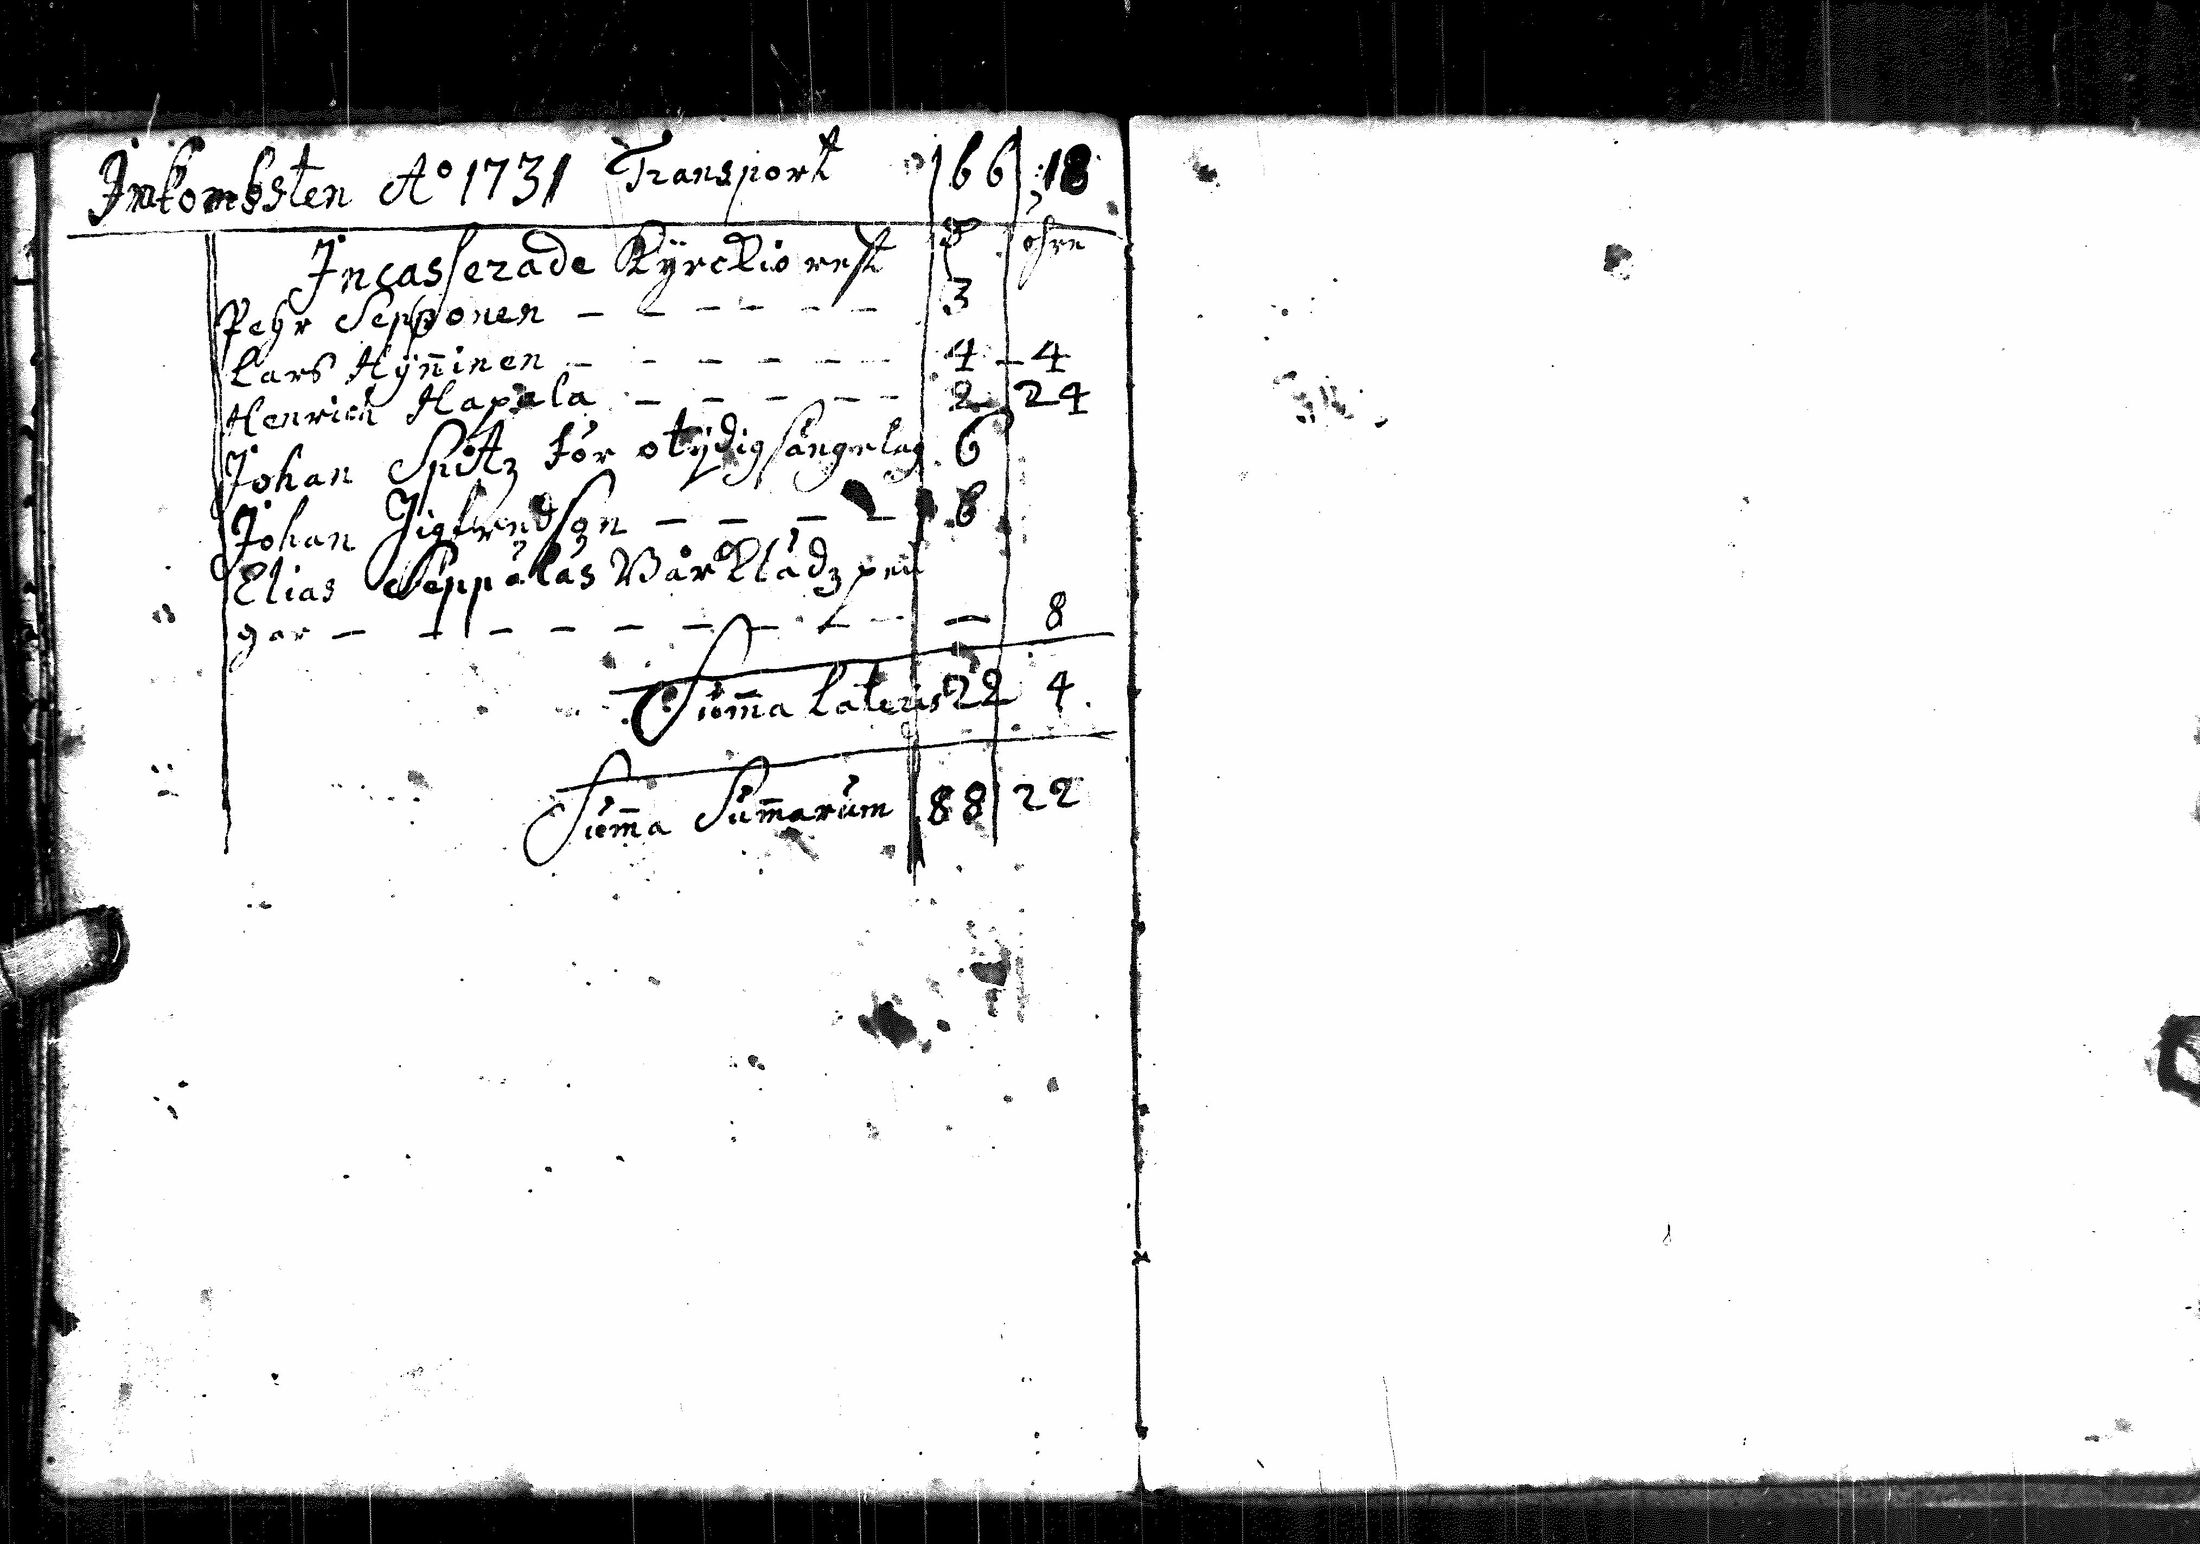 Inkombsten Ao 1731 Transport 66 18
Incasserade Kÿrckio rest D öhre
Pehr Sepponen — — — — — — 3
Lars Hÿn̄inen — — — — — — 4 — 4
Henrich Hapala — — — — — 2 24
Johan Spitz för otÿdig sängelag 6
Johan Sigfredson — — — — 6
Elias Seppäläs Vår klädz pen̄
gar — — — — — — — — — — 8
Sum̄a Lateris 22 4.
Sum̄a Sum̄arum 88 22